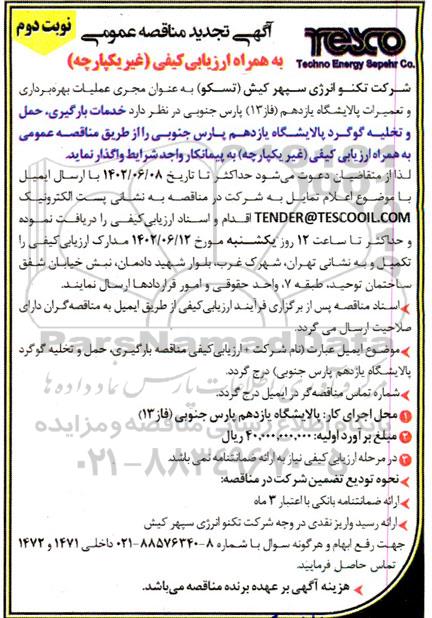 نوبت دوم
آگهی تجدید مناقصه عمومی
به همراه ارزیابی کیفی (غیر یکپارچه)
TESCO
Techno Energy Sepehr Co.
شرکت تکنو انرژی سپهر کیش (تسکو) به عنوان مجری عملیات بهره‌برداری
و تعمیرات پالایشگاه یازدهم (فاز۱۳) پارس جنوبی در نظر دارد خدمات بارگیری، حمل
و تخلیه گوگرد پالایشگاه یازدهم پارس جنوبی را از طریق مناقصه عمومی
به همراه ارزیابی کیفی (غیر یکپارچه) به پیمانکار واجد شرایط واگذار نماید.
لذا از متقاضیان دعوت می‌شود حداکثر تا تاریخ ۱۴۰۲/۰۶/۰۸ با ارسال ایمیل
با موضوع اعلام تمایل به شرکت در مناقصه به نشانی پست الکترونیک
TENDER@TESCOOIL.COM اقدام و اسناد ارزیابی کیفی را دریافت نموده
و حداکثر تا ساعت ۱۲ روز یکشنبه مورخ ۱۴۰۲/۰۶/۱۲ مدارک ارزیابی کیفی را
تکمیل و به نشانی تهران، شهرک غرب، بلوار شهید دادمان، نبش خیابان شفق
ساختمان توحید، طبقه ۷، واحد حقوقی و امور قراردادها ارسال نمایند.
اسناد مناقصه پس از برگزاری فرآیند ارزیابی کیفی از طریق ایمیل به مناقصه‌گران دارای
صلاحیت ارسال می گردد.
موضوع ایمیل عبارت (نام شرکت + ارزیابی کیفی مناقصه بارگیری، حمل و تخلیه گوگرد
پالایشگاه یازدهم پارس جنوبی) درج گردد.
شماره تماس مناقصه‌گر در ایمیل درج گردد.
۱ محل اجرای کار: پالایشگاه یازدهم پارس جنوبی (فاز ۱۳)
۲ مبلغ برآورد اولیه: ۴۰,۰۰۰,۰۰۰,۰۰۰ ریال
۳ در مرحله ارزیابی کیفی نیاز به ارائه ضمانتنامه نمی باشد.
نحوه تودیع تضمین شرکت در مناقصه:
ارائه ضمانتنامه بانکی با اعتبار ۳ ماه
ارائه رسید واریز نقدی در وجه شرکت تکنو انرژی سپهر کیش
جهت رفع ابهام و هرگونه سوال با شماره ۸-۸۸۵۷۶۳۴۰-۰۲۱ داخلی ۱۴۷۱ و ۱۴۷۲
تماس حاصل فرمایید.
هزینه آگهی بر عهده برنده مناقصه می‌باشد.